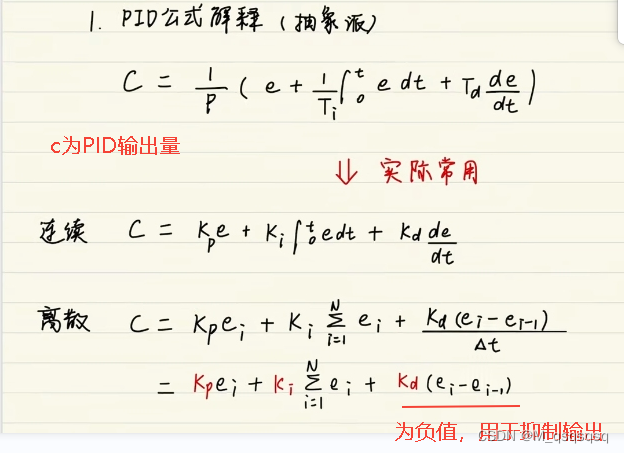 1. PID公式解释（抽象派）
C = 1/P ( e + 1/Ti ∫₀ᵗ e dt + Td de/dt )
c为PID输出量
⇓ 实际常用
连续 C = Kpe + Ki ∫₀ᵗ edt + Kd de/dt
离散 C = Kpei + Ki ∑ᵢ₌₁ᴺ ei + Kd (ei - ei-1)/Δt
= Kpei + Ki ∑ᵢ₌₁ᴺ ei + Kd (ei - ei-1)
为负值，用于抑制输出